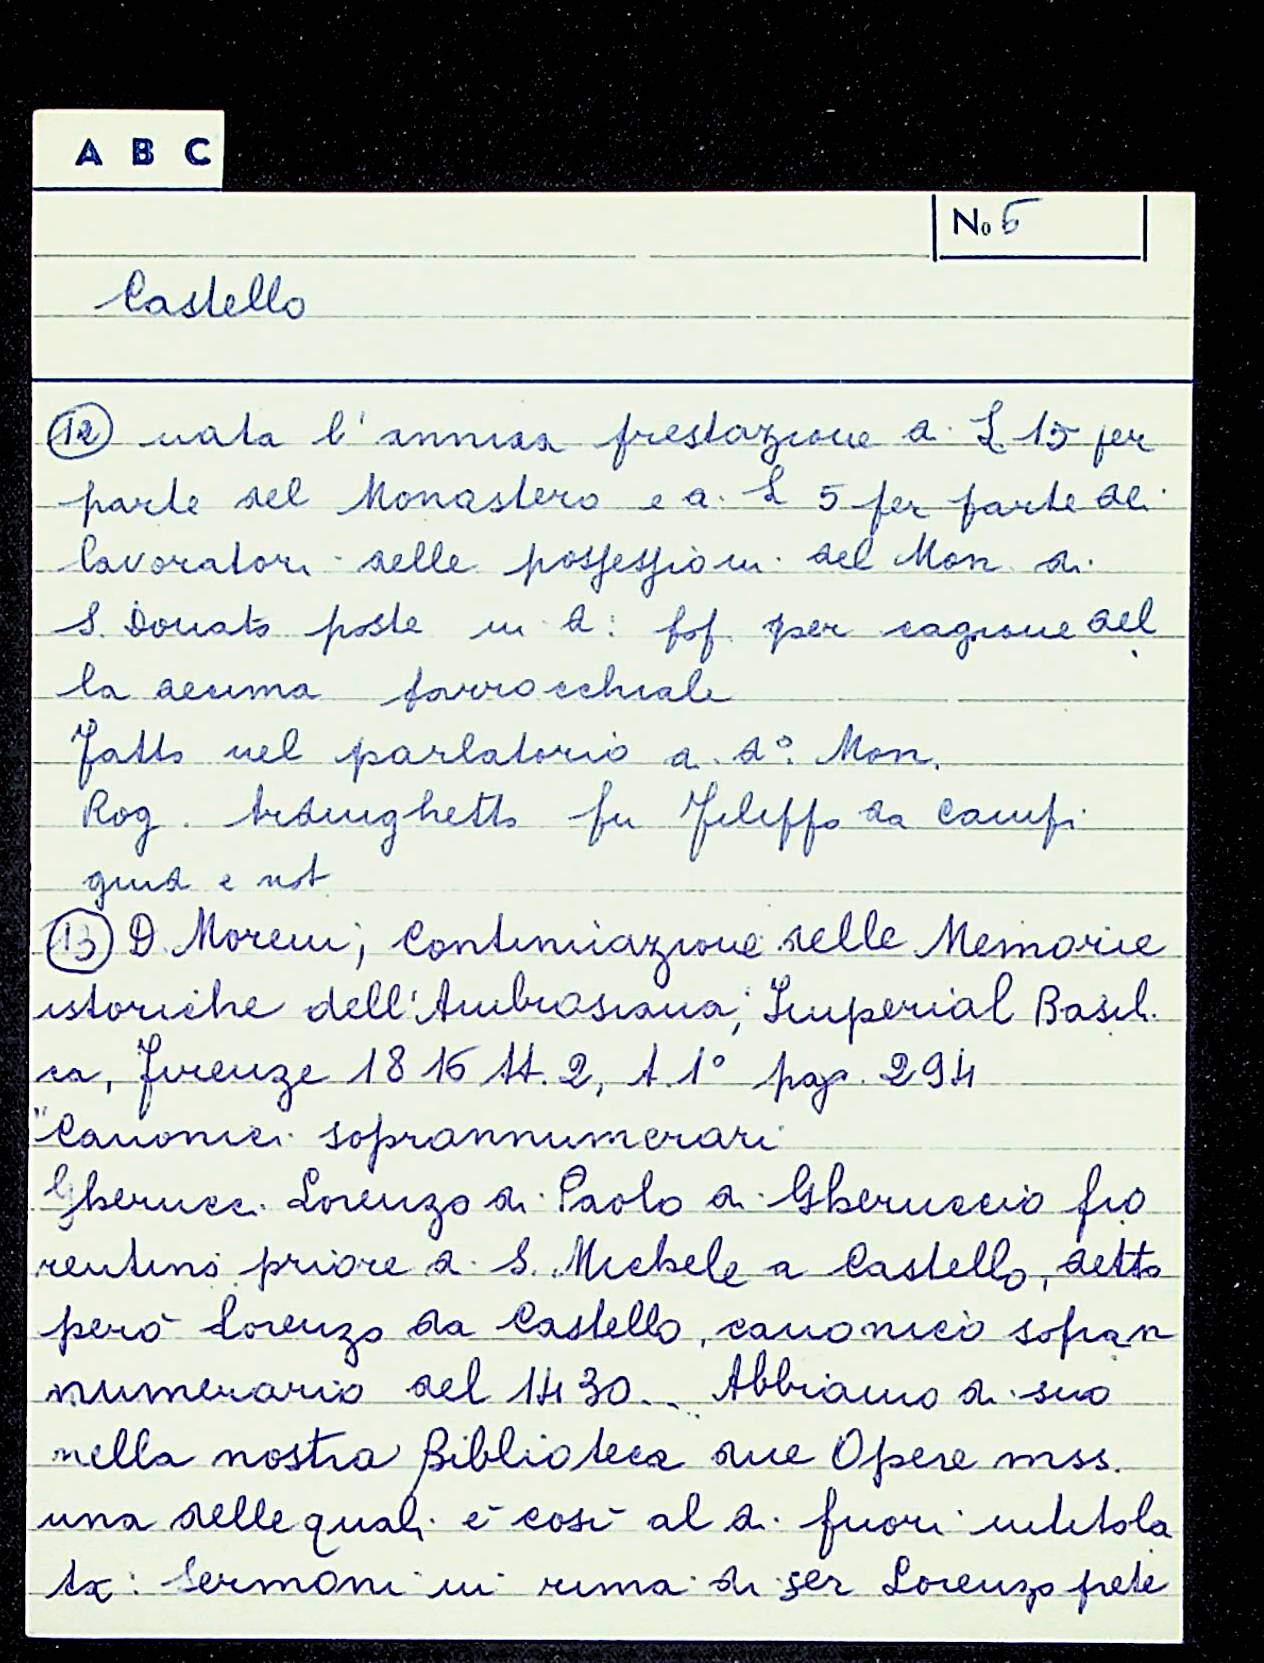 A B C
No 5
Castello
12 nata l'annua prestazione a L. 15 per
parte del Monastero e a L 5 per parte dei
lavoratori delle possessioni del Mon di
S. Donato poste in d: pop. per cagione del
la decima parrocchiale
Fatto nel parlatorio d. do: Mon.
Rog. Ardinghetto fu Filippo da Campi
giud e not
13 D. Moreni, Continuazione delle Memorie
istoriche dell'Ambrosiana, Imperial Basili
ca, Firenze 1816 tt. 2, t. 1° pag. 294
"Canonici soprannumerari
Gherucci Lorenzo di Paolo di Gheruccio fio
rentino priore di S. Michele a Castello, detto
però Lorenzo da Castello, canonico sopran
numerario del 1430... Abbiamo di suo
nella nostra Biblioteca due Opere mss.
una delle quali è così al di fuori intitola
ta: Sermoni in rima di ser Lorenzo prete